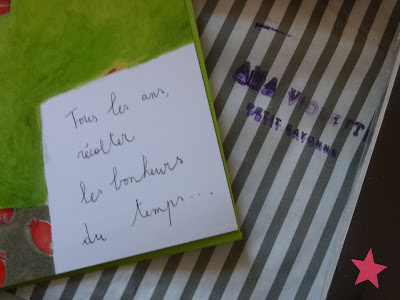 Tous les ans,
récolter
les bonheurs
du temps...
PETIT BAYONNE